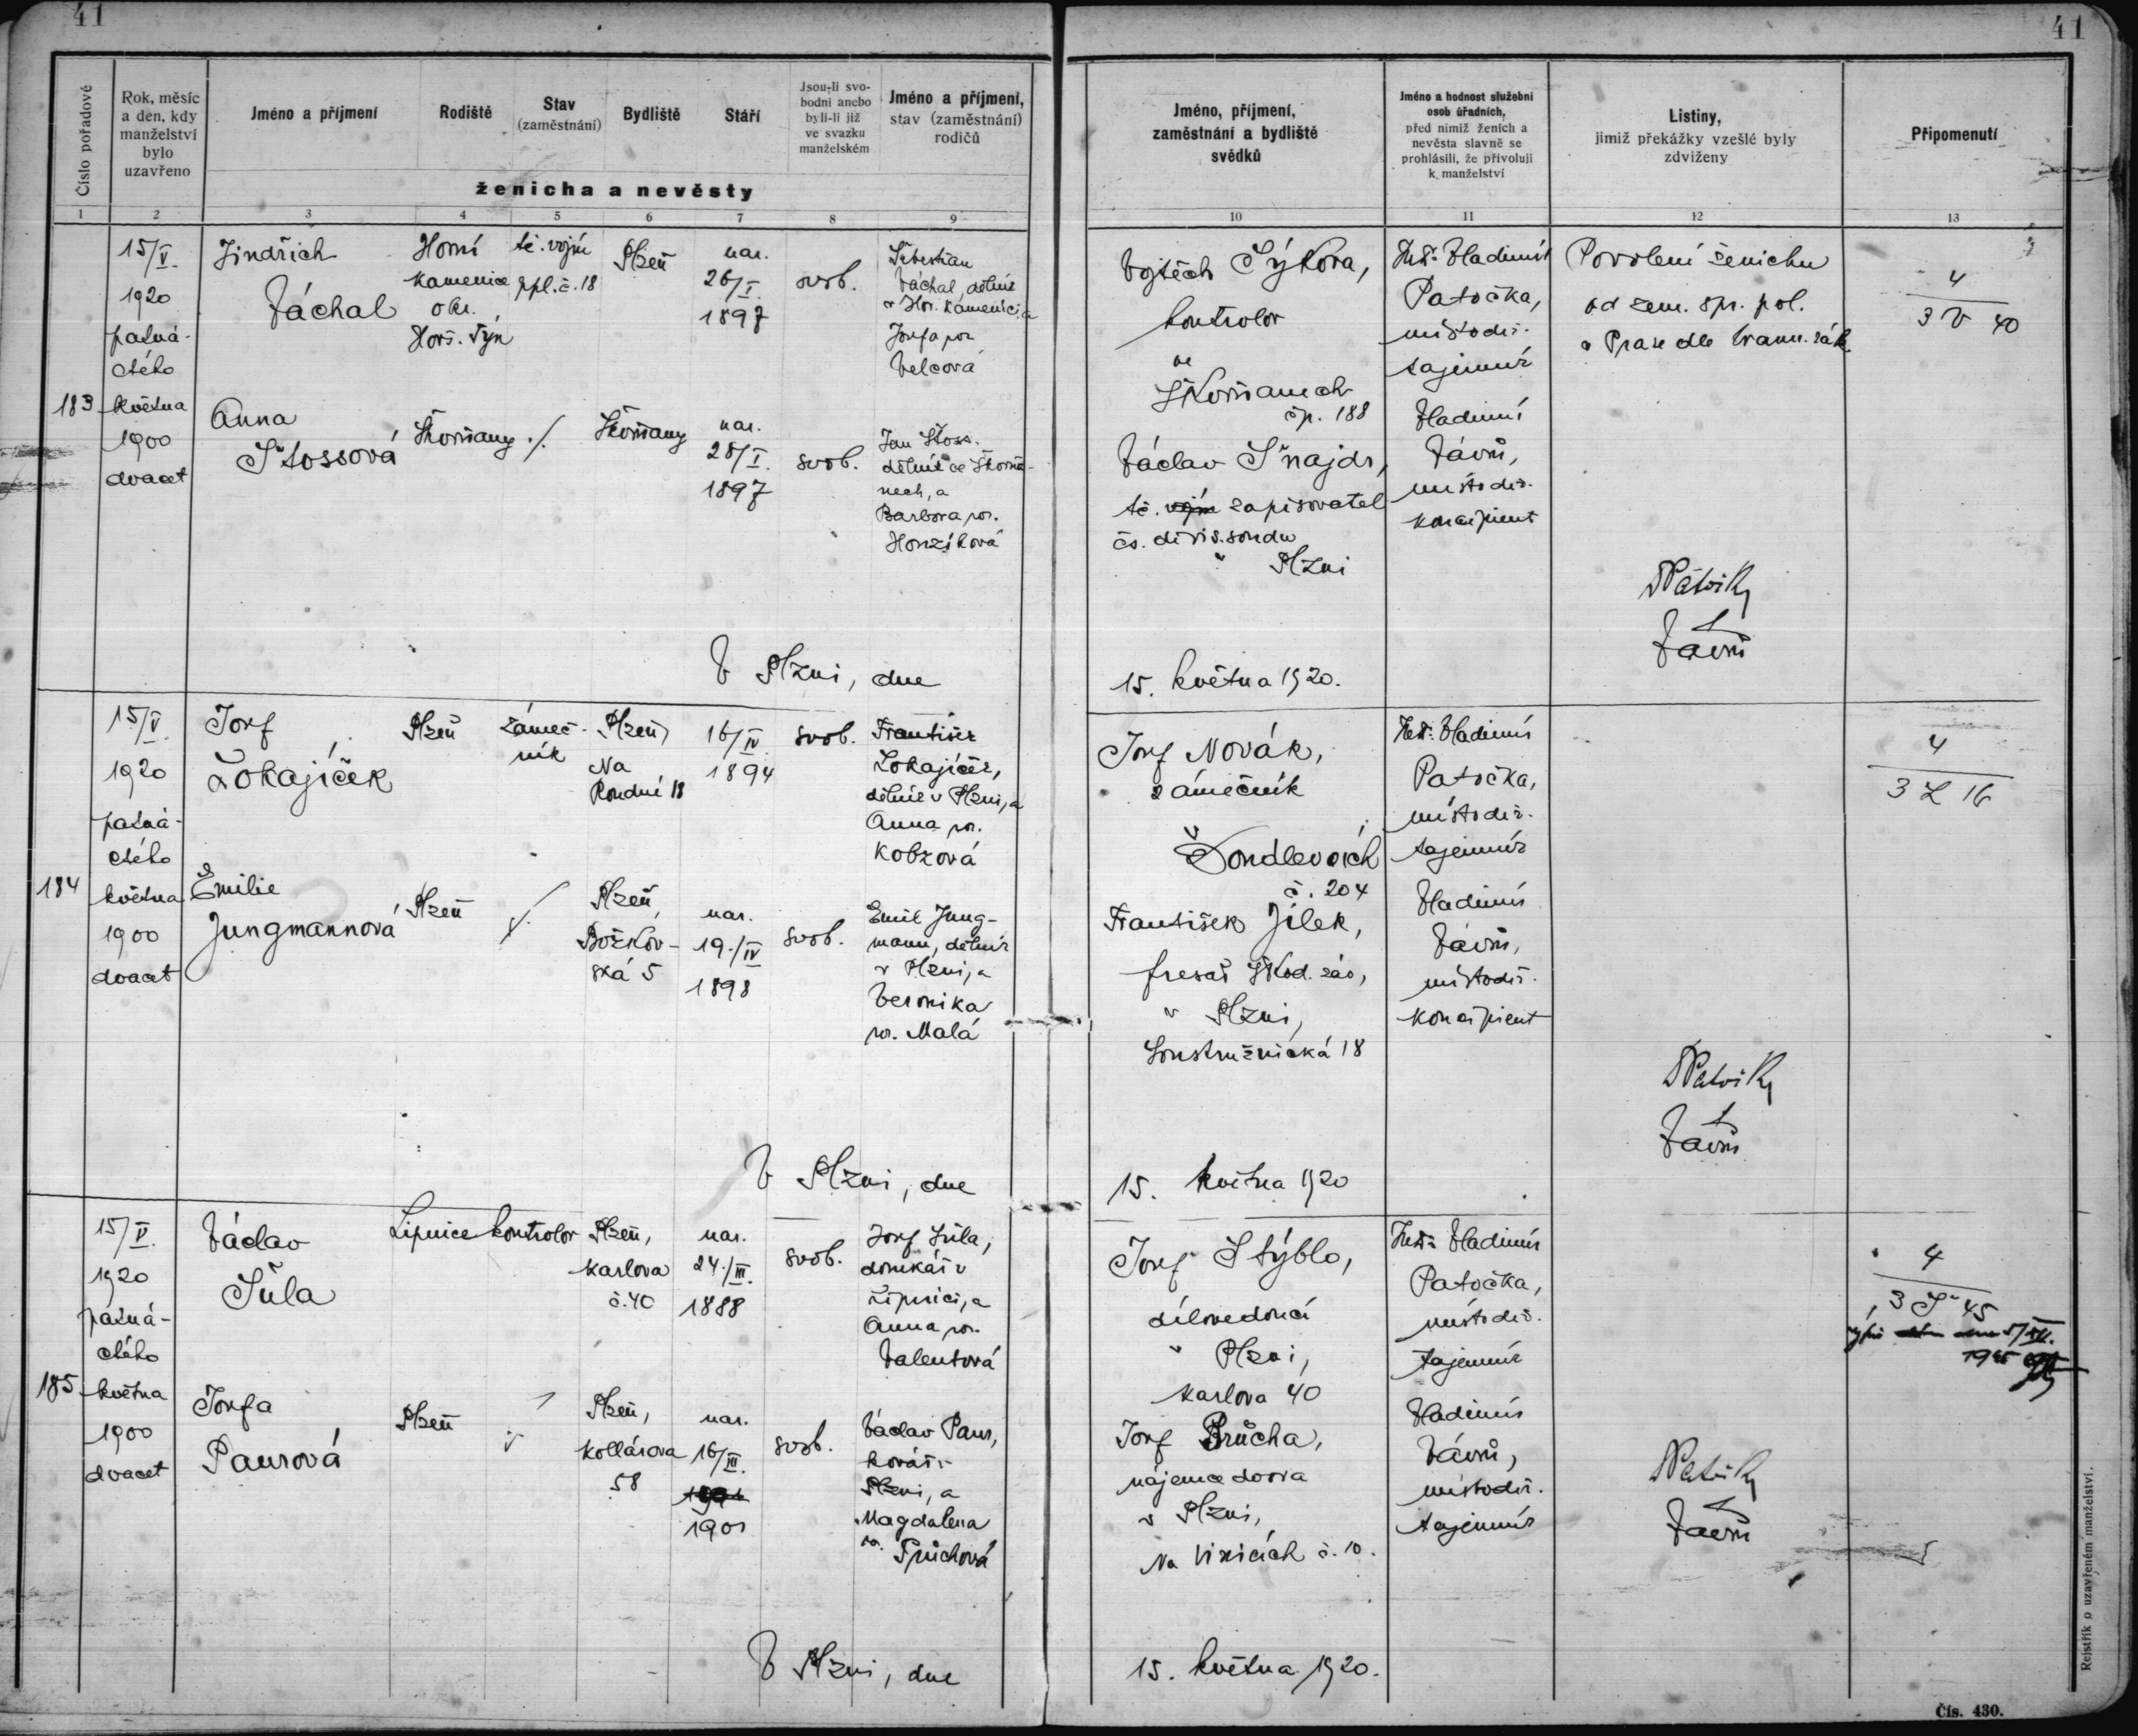 41
41
Číslo pořadové
Rok, měsíc
a den, kdy
manželství
bylo
uzavřeno
Jméno a příjmení
Rodiště
Stav
(zaměstnání)
Bydliště
Stáří
Jsou-li svo-
bodni anebo
byli-li již
ve svazku
manželském
Jméno a příjmení,
stav (zaměstnání)
rodičů
ženicha a nevěsty
Jméno, příjmení,
zaměstnání a bydliště
svědků
Jméno a hodnost služební
osob úřadních,
před nimiž ženich a
nevěsta slavně se
prohlásili, že přivolují
k manželství
Listiny,
jimiž překážky vzešlé byly
zdviženy
Připomenutí
1 2 3 4 5 6 7 8 9 10 11 12 13
183
15/V.
1920
patná-
ctého
května
1900
dvacet
Jindřich
Váchal
Horní
Kamenice
okr.
Horš. Týn
tč. vojín
ppl. č. 18
Plzeň
nar.
26/I.
1897
svob.
Váchal, dělník
v Hor. Kamenici, a
Josefa roz.
Velcová
Anna
Štossová
Škvrňany
./.
Škvrňany
nar.
28/I.
1897
svob.
Jan Štoss.
dělník ve Škvrňa-
nech, a
Barbora roz.
Honzíková
Vojtěch Sýkora,
kontrolor
ve
Škvrňanech
čp. 188
Václav Šnajdr,
tč. vojín zapisovatel
čs. divis. soudu
v Plzni
Vladimír
Patočka,
místodrž.
tajemník
Vladimír
Vávrů,
místodrž.
koncipient
Povolení ženichu
od zem. spr. pol.
v Praze dle brann. zák.
4
3 V 40
Vávrů
V Plzni, dne
15. května 1920.
184
15/V.
1920
patná-
ctého
května
1900
dvacet
Josef
Lokajíček
Plzeň
zámeč-
ník
Plzeň,
Na
Roudné 18
16/IV.
1894
svob.
František
Lokajíček,
dělník v Plzni, a
Anna roz.
Kobzová
Emilie
Jungmannová
Plzeň
Plzeň,
Božkov-
ská 5
nar.
19./IV
1898
svob.
Emil Jung-
mann, dělník
v Plzni, a
Veronika
roz. Malá
Josef Novák,
zámečník
v
Doudlevcích
č. 204
František Jílek,
fresař Škod. záv,
v Plzni,
Soustružnická 18
Vladimír
Patočka,
místodrž.
tajemník
Vladimír
Vávrů,
místodrž.
koncipient
4
3 L 16
Vávrů
V Plzni, dne
15. května 1920
185
15/V.
1920
patná-
ctého
května
1900
dvacet
Václav
Šůla
Lipnice
kontrolor
Plzeň,
Karlova
č. 40
nar.
24./III.
1888
svob.
Josef Šůla,
domkář v
Lipnici, a
Anna roz.
Valentová
Josefa
Paurová
Plzeň
Plzeň,
Kollárova
58
nar.
16/III.
1901
svob.
Václav Paur,
kovář v
Plzni, a
Magdalena
roz. Průchová
Josef Stýblo,
dílovedoucí
v Plzni,
Karlova 40
Josef Průcha,
nájemce dvora
v Plzni,
Na Vinicích č. 10.
Vladimír
Patočka,
místodrž.
tajemník
Vladimír
Vávrů,
místodrž.
tajemník
4
3 Š 45
Vávrů
V Plzni, dne
15. května 1920.
Rejstřík o uzavřeném manželství.
Čís. 430.